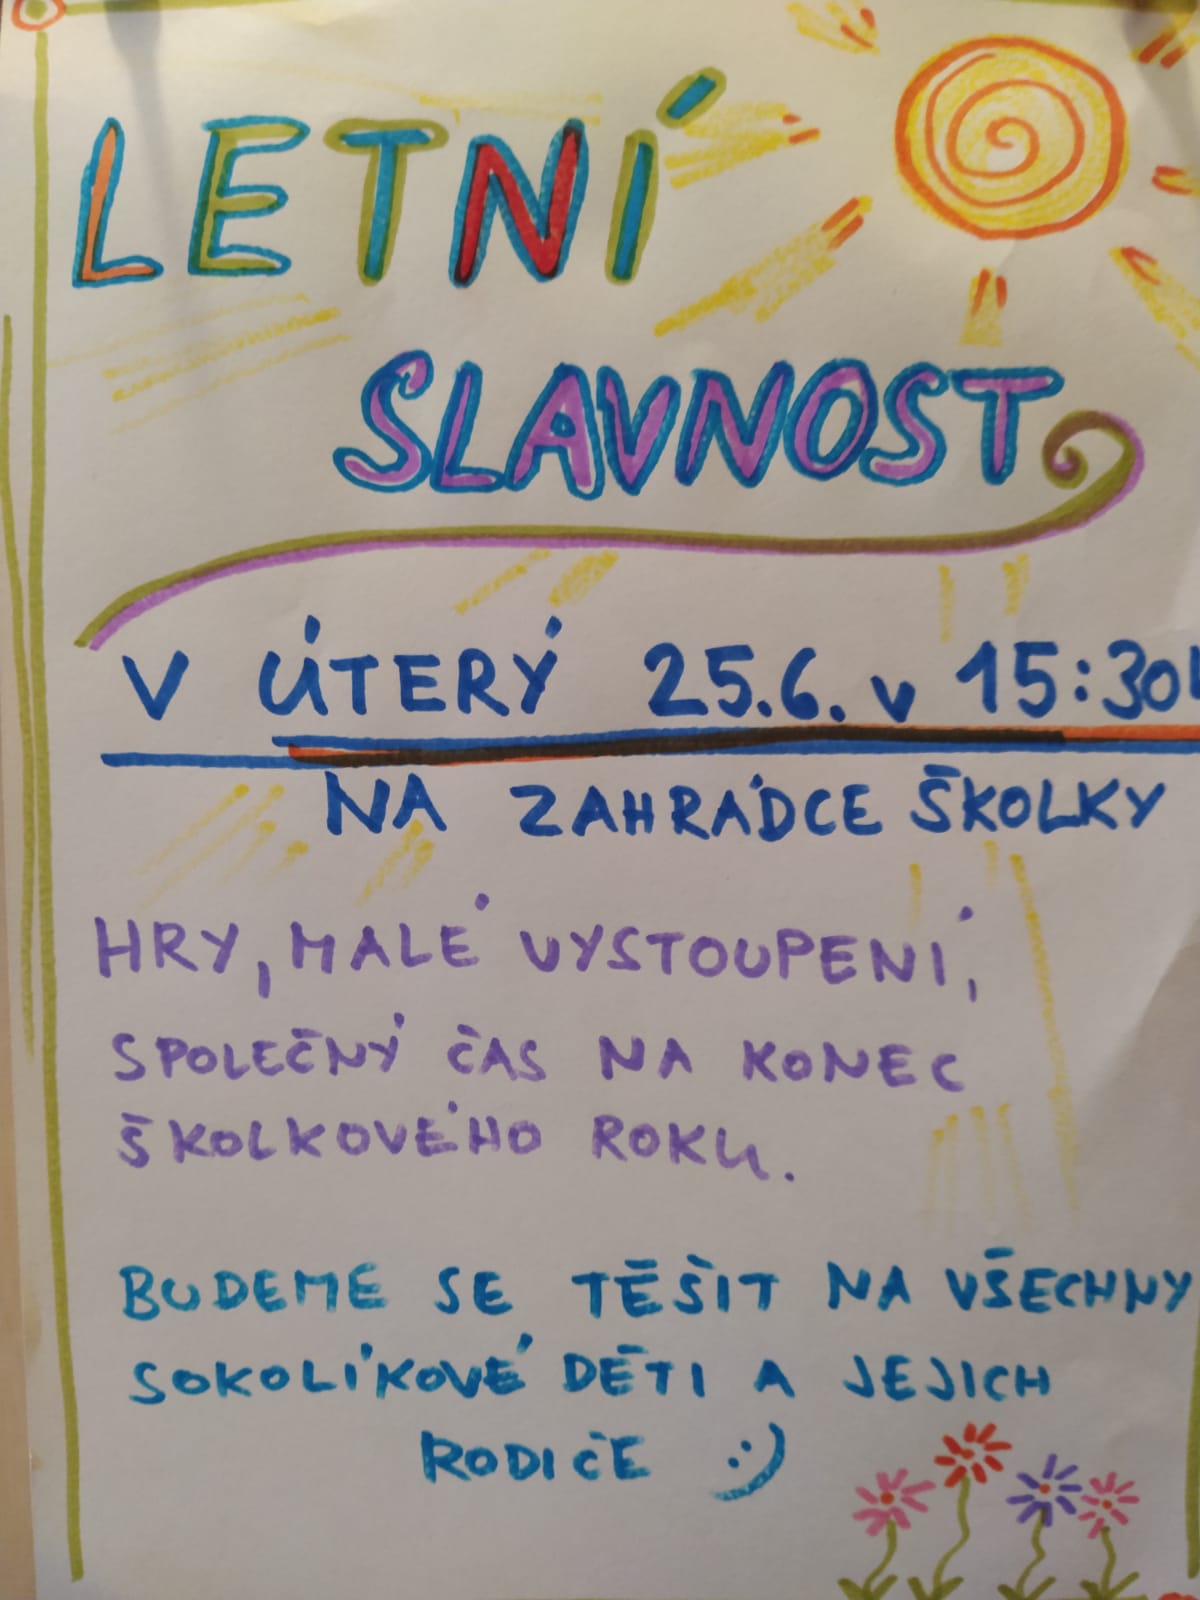 LETNÍ
SLAVNOST
V ÚTERÝ 25.6. v 15:30h
NA ZAHRÁDCE ŠKOLKY
HRY, MALÉ VYSTOUPENÍ,
SPOLEČNÝ ČAS NA KONEC
ŠKOLKOVÉHO ROKU.
BUDEME SE TĚŠIT NA VŠECHNY
SOKOLÍKOVÉ DĚTI A JEJICH
RODIČE :)